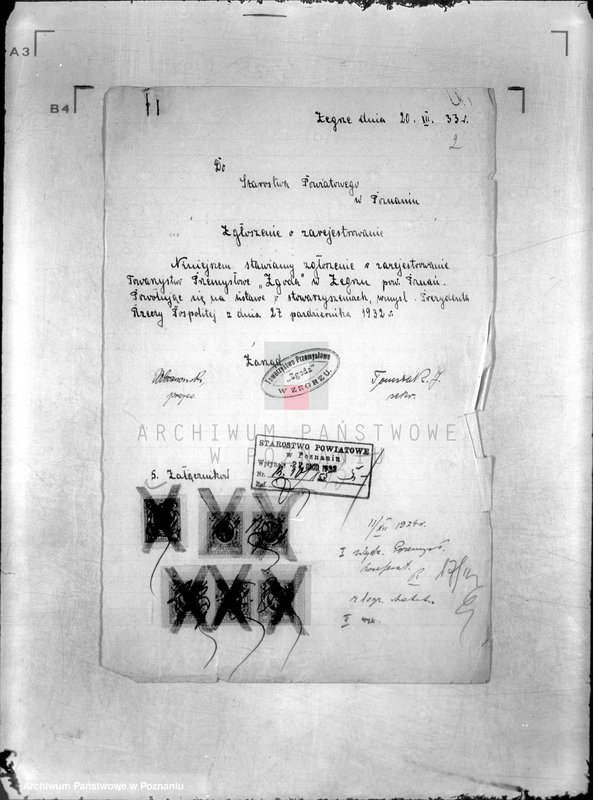 A3
B4
Żegrze dnia 20. XII. 33 r.
2
Do
Starostwa Powiatowego
w Poznaniu
Zgłoszenie o zarejestrowanie
Niniejszem stawiamy zgłoszenie o zarejestrowanie
Towarzystw Przemysłowe „Zgoda” w Żegrzu pow. Poznań.
Powołując się na ustawę o stowarzyszeniach, w myśl. Prezydenta
Rzeczy Pospolitej z dnia 27 października 1932 r.
Zarząd
Towarzystwo Przemysłowe
„Zgoda”
W ZEGRZU.
prezes
sekr.
ARCHIWUM PAŃSTWOWE
W POZNANIU
STAROSTWO POWIATOWE
w Poznaniu
Wpłynęło 22 GRU 1933
Nr.
Ref.
5. Załączników
I
V
Archiwum Państwowe w Poznaniu